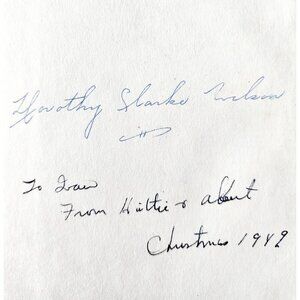 Dorothy Clarke Wilson
To
From Hattie & Albert
Christmas 1949